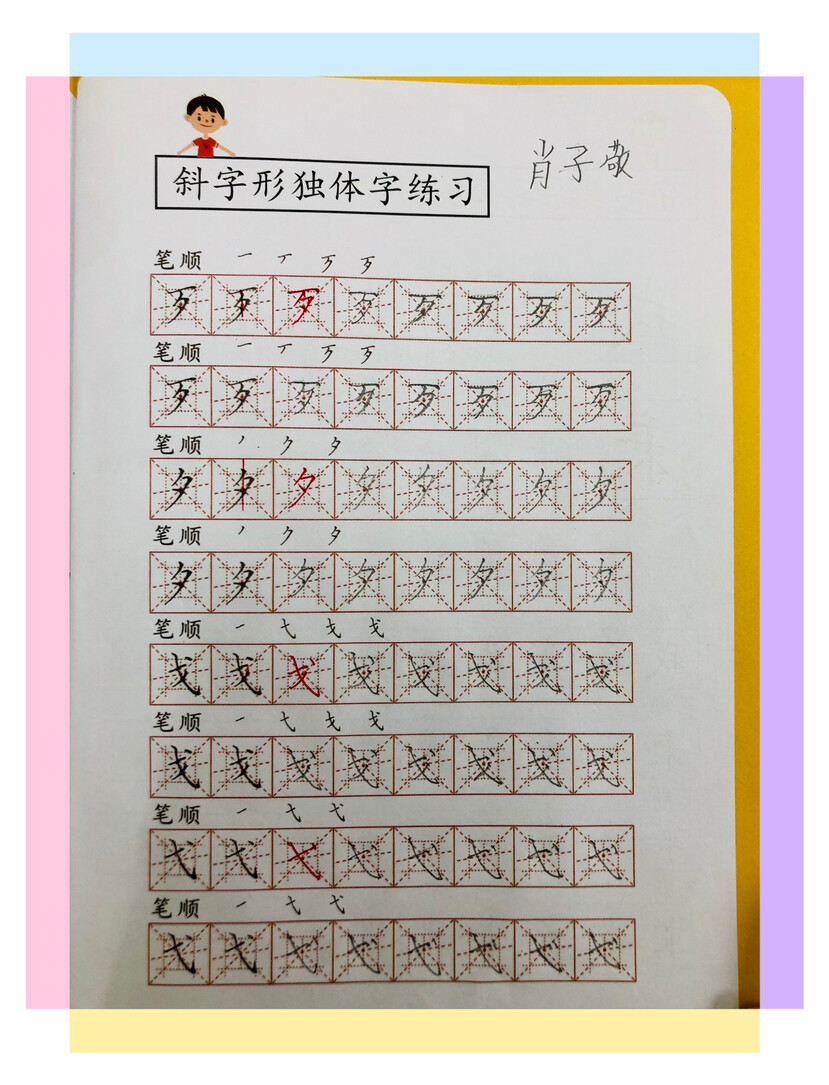 斜字形独体字练习
肖子敬
笔顺 一 丆 歹 歹
歹 歹 歹 歹 歹 歹 歹 歹
笔顺 一 丆 歹 歹
歹 歹 歹 歹 歹 歹 歹 歹
笔顺 丿 ク 夕
夕 夕 夕 夕 夕 夕 夕 夕
笔顺 丿 ク 夕
夕 夕 夕 夕 夕 夕 夕 夕
笔顺 一 弋 戈 戈
戈 戈 戈 戈 戈 戈 戈 戈
笔顺 一 弋 戈 戈
戈 戈 戈 戈 戈 戈 戈 戈
笔顺 一 七 弋
弋 弋 弋 弋 弋 弋 弋 弋
笔顺 一 七 弋
弋 弋 弋 弋 弋 弋 弋 弋